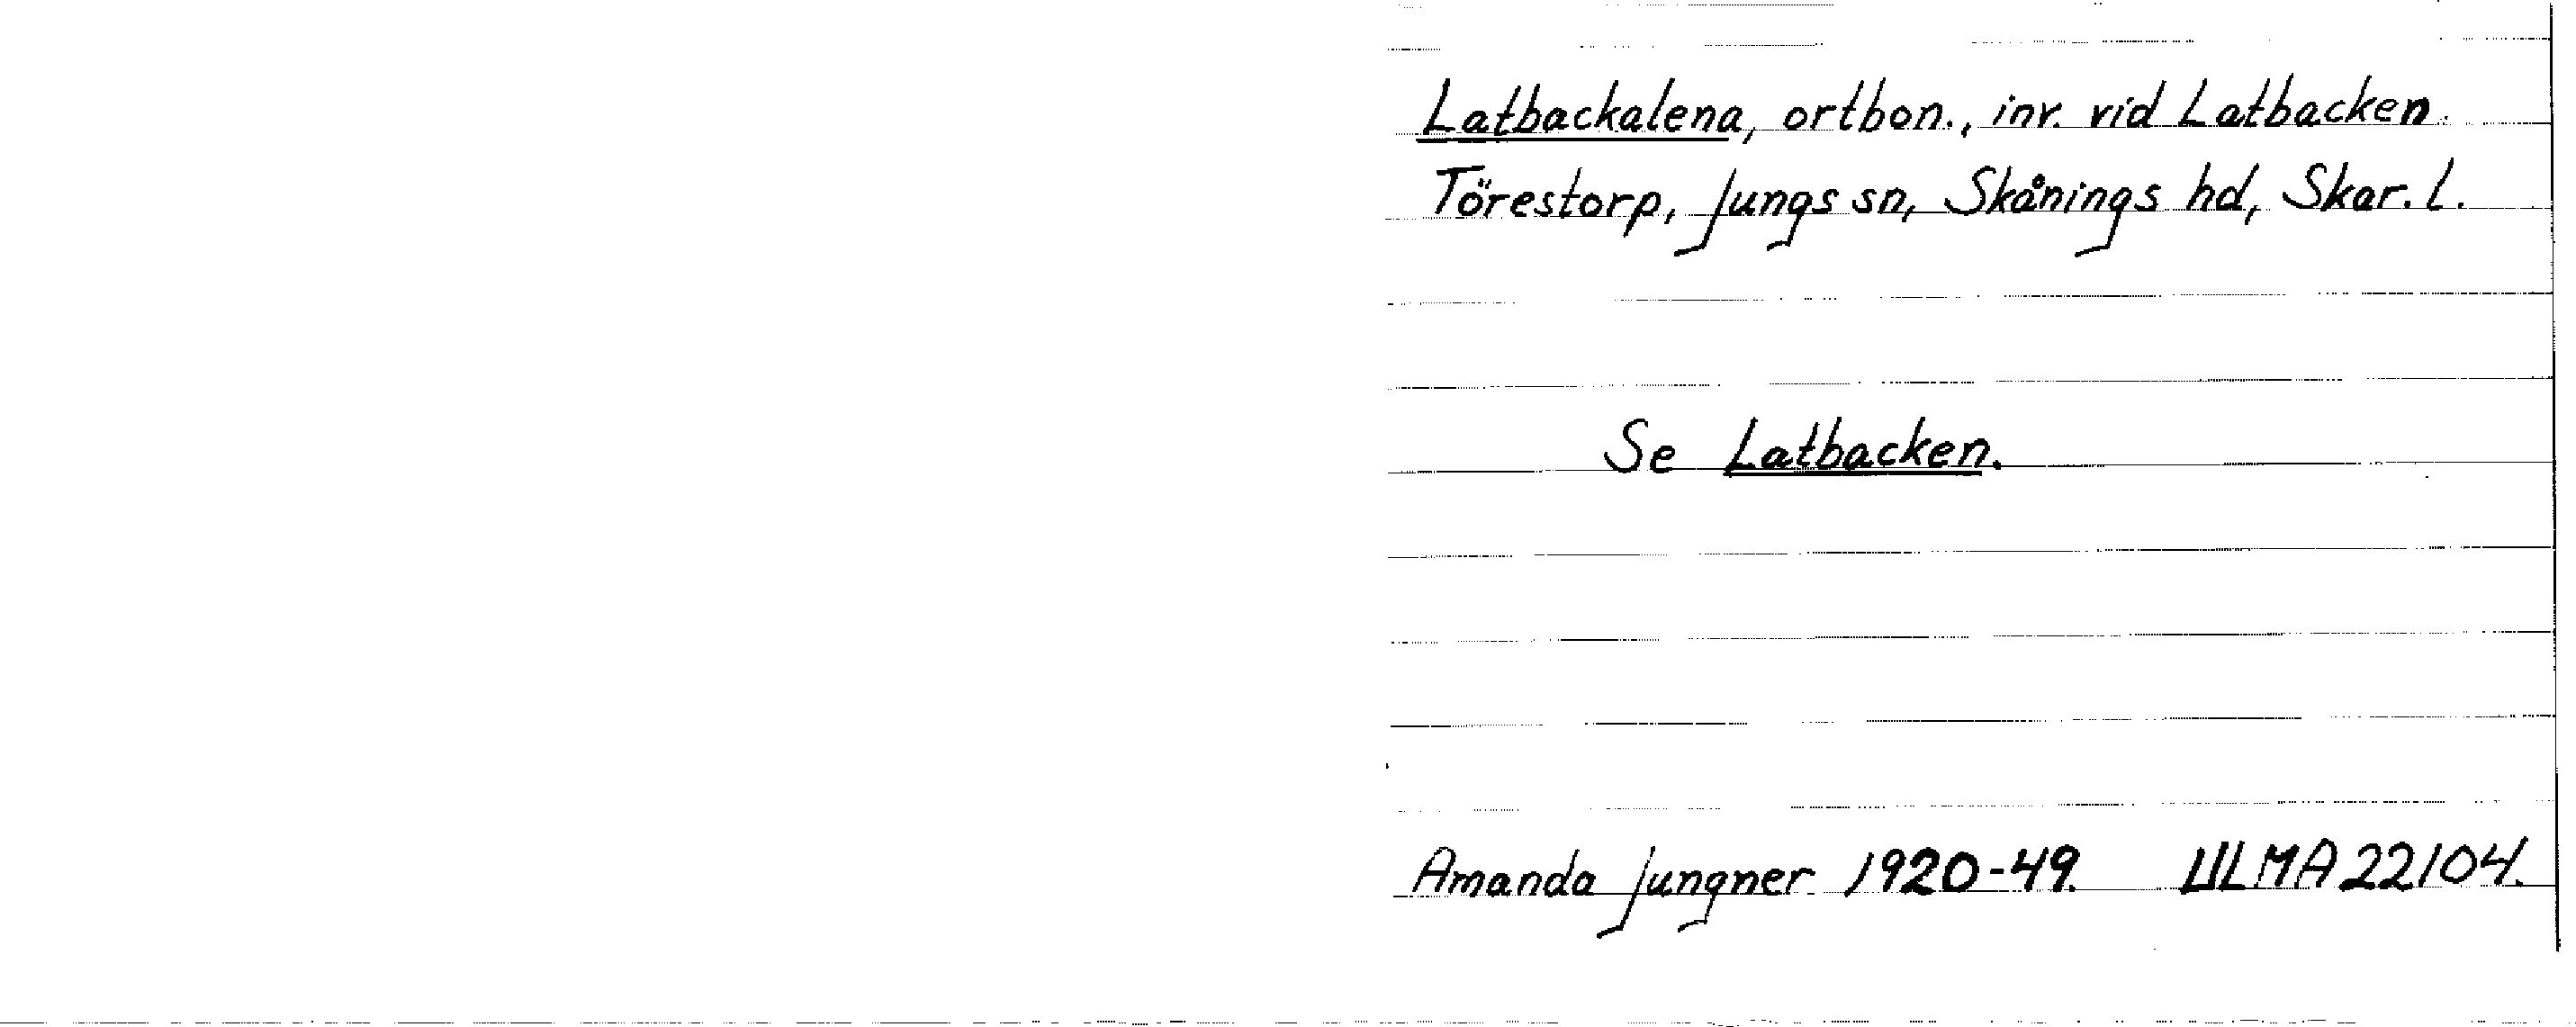 Latbackalena, ortbon., inv. vid Latbacken.
Törestorp, Jungs sn, Skånings hd, Skar. l.
Se Latbacken.
Amanda Jungner 1920-49. ULMA 22104.